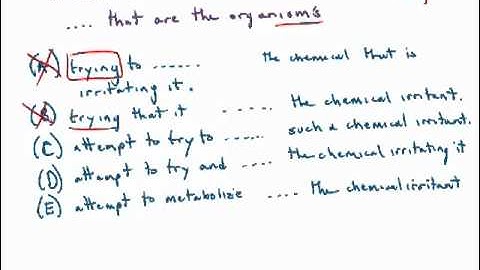 .... that are the organism's
(A) trying to ...... the chemical that is
irritating it.
(B) trying that it ..... the chemical irritant.
(C) attempt to try to ...... such a chemical irritant.
(D) attempt to try and ..... the chemical irritating it
(E) attempt to metabolize .... the chemical irritant